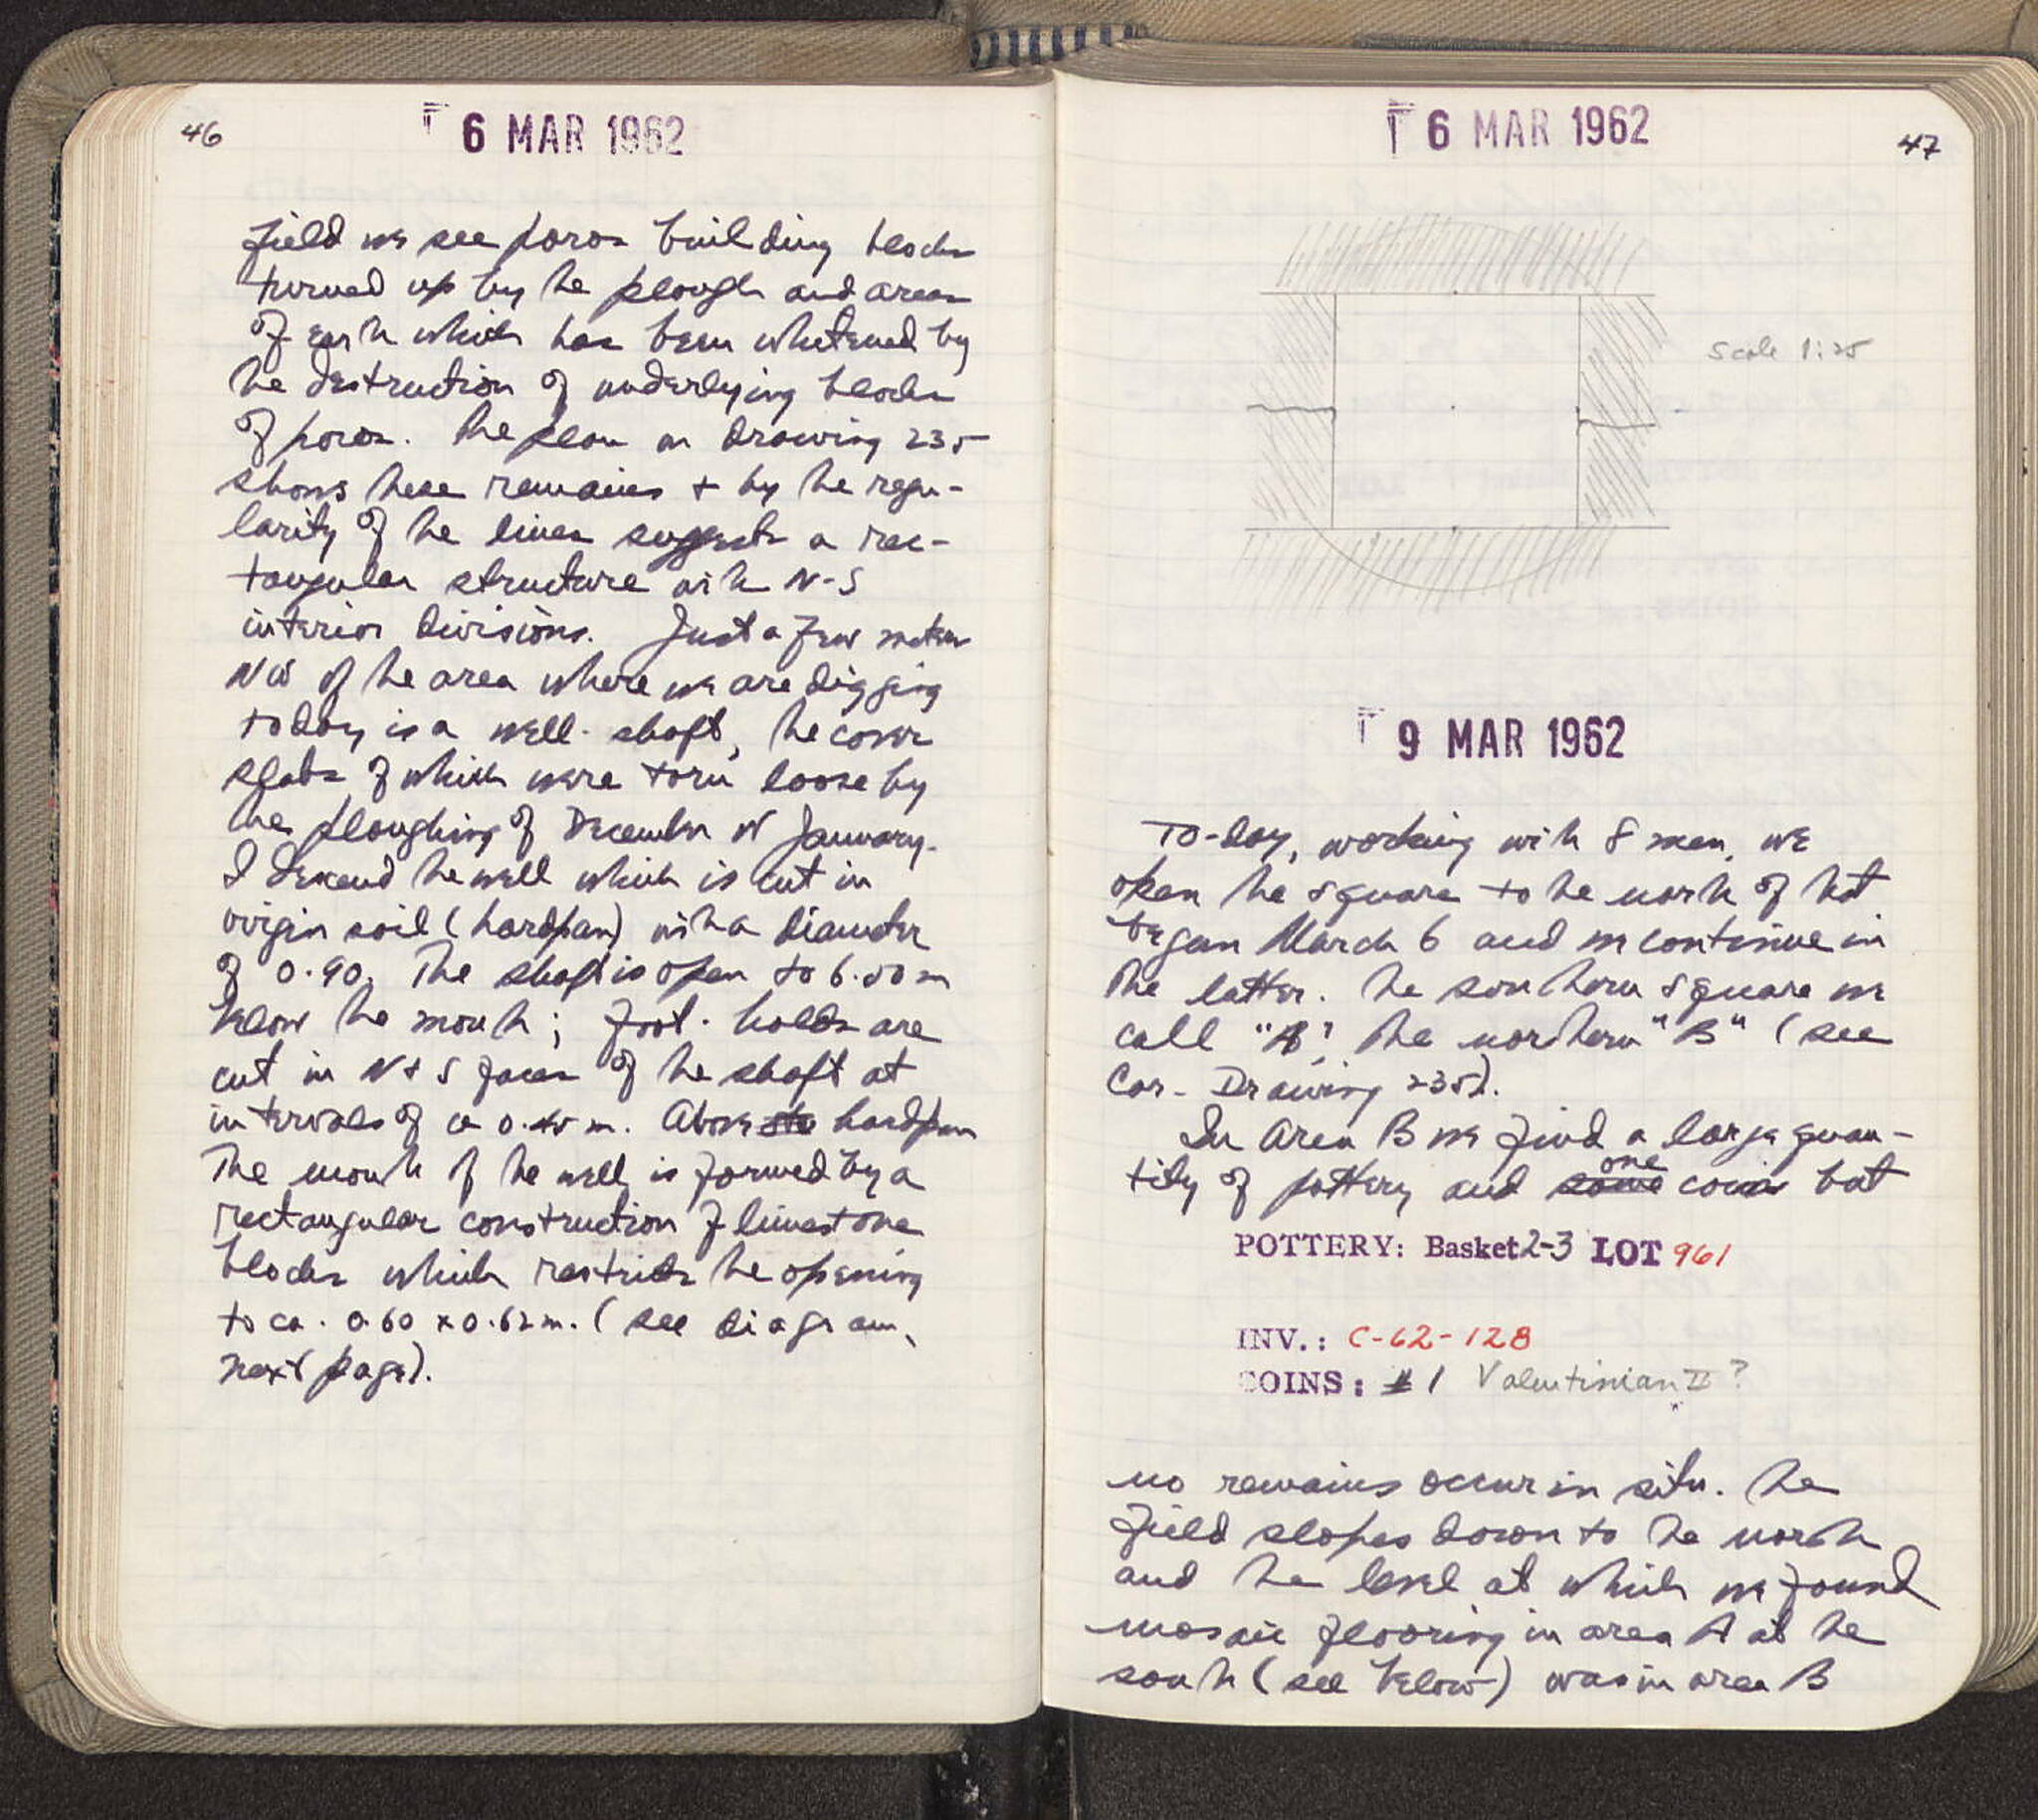 46
6 MAR 1962
field we see poros building blocks
turned up by the plough and areas
of earth which has been whitened by
the destruction of underlying blocks
of poros. The plan on drawing 235
shows these remains + by the regu-
larity of the lines suggests a rec-
tangular structure with N-S
interior divisions. Just a few meters
NW of the area where we are digging
today is a well-shaft, the cover
slabs of which were torn loose by
the ploughing of December or January.
I descend the well which is cut in
virgin soil (hardpan) with a diameter
of 0.90. The shaft is open to 6.50 m
below the mouth; foot-holds are
cut in N + S faces of the shaft at
intervals of ca 0.45 m. Above hardpan
the mouth of the well is formed by a
rectangular construction of limestone
blocks which restricts the opening
to ca. 0.60 x 0.62 m. (see diagram,
next page).
6 MAR 1962
47
Scale 1:25
9 MAR 1962
To-day, working with 8 men, we
open the square to the north of that
began March 6 and we continue in
the latter. The southern square we
call "A", the northern "B" (see
Cor. Drawing 235).
In Area B we find a large quan-
tity of pottery and some one coin but
POTTERY: Basket 2-3 LOT 961
INV.: C-62-128
COINS: #1 Valentinian II?
no remains occur in situ. The
field slopes down to the north
and the level at which we found
mosaic flooring in area A at the
south (see below) was in area B